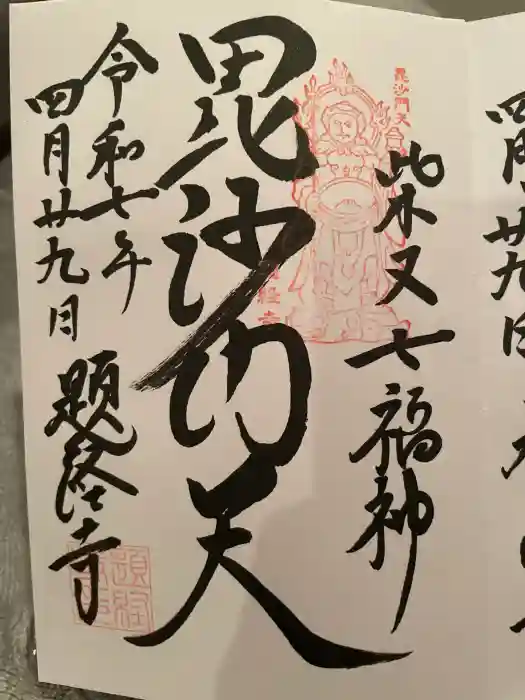 柴又七福神
毘沙門天
毘沙門天
令和七年
四月廿九日
題経寺
題経寺